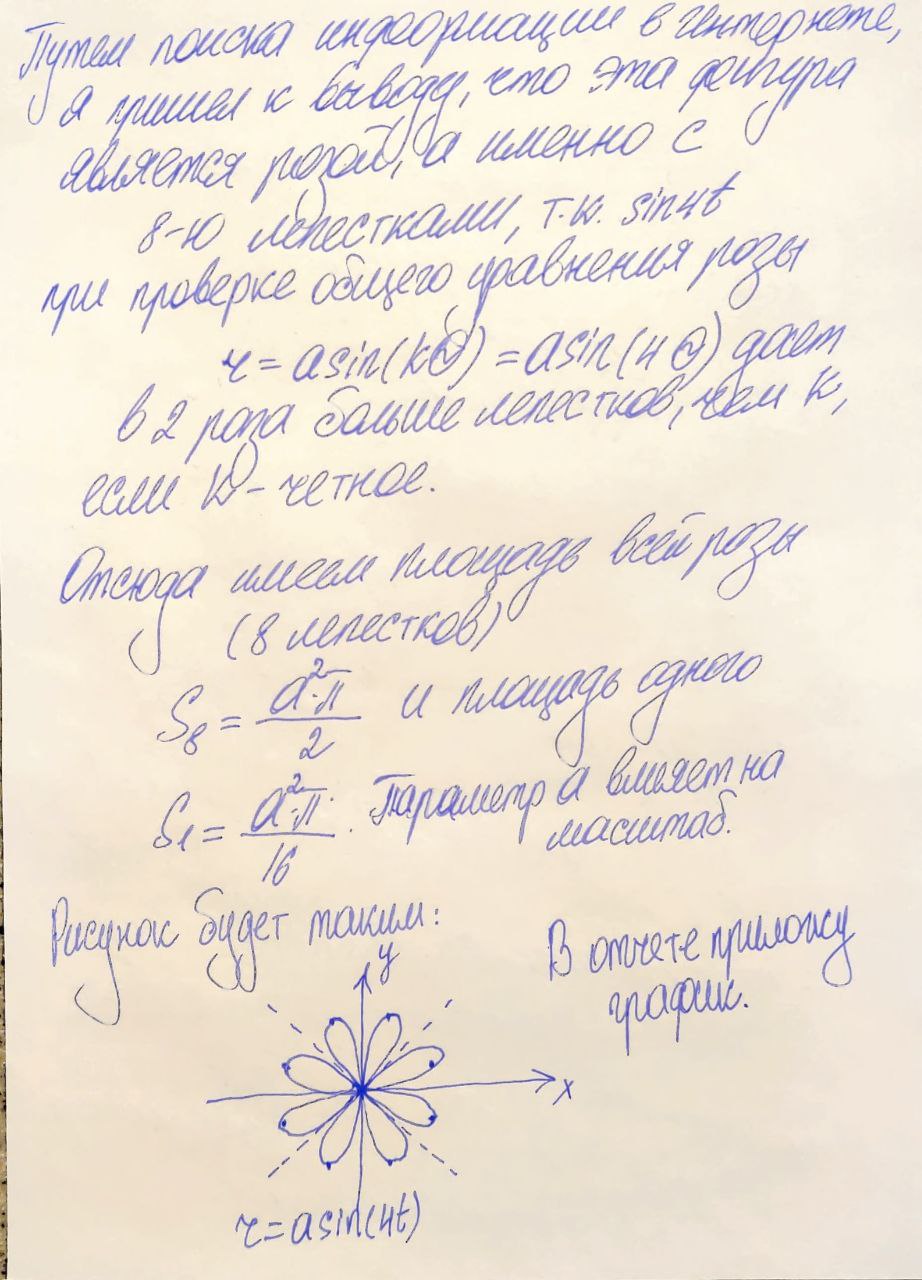 Путем поиска информации в интернете,
я пришел к выводу, что эта фигура
является розой, а именно с
8-ю лепестками, т.к. sin4t
при проверке общего уравнения розы
r = asin(kθ) = asin(4θ) дает
в 2 раза больше лепестков, чем k,
если k - четное.
Отсюда имеем площадь всей розы
(8 лепестков)
S₈ = a²·π / 2 и площадь одного
S₁ = a²·π / 16 . Параметр a влияет на
масштаб.
Рисунок будет таким:
В отчете приложу
график.
y
x
r = asin(4t)